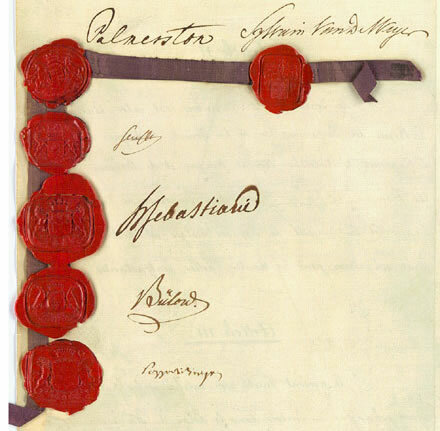 Palmerston Sylvain Van de Weyer
Senfft
HSebastiani
Bülow.
Pozzo di Borgo